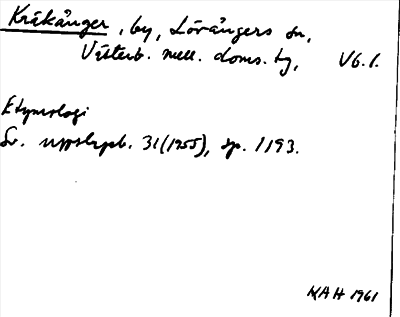 Kråkånger, by, Lövångers sn,
Västerb. mell. doms. tg, Vb. l.
Etymologi
Sv. uppslagsb. 31(1955), sp. 1193.
KAH 1961